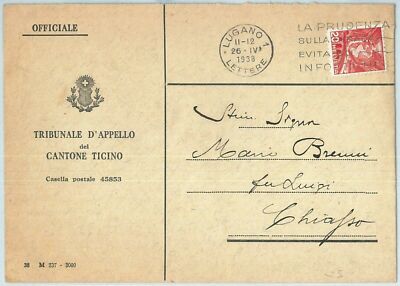 OFFICIALE
TRIBUNALE D'APPELLO
del
CANTONE TICINO
Casella postale 45853
38 M 237 - 3000
LUGANO 1
11-12
26·IV
1938
LETTERE
LA PRUDENZA
SULLA
EVITA
INFO
20
Sign.
Mario Brenni
fu Luigi
Chiasso